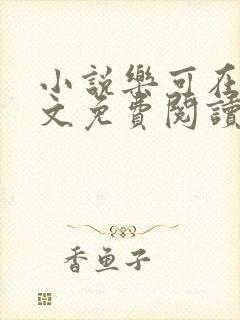 小説樂可在
文免費閱讀
香魚子